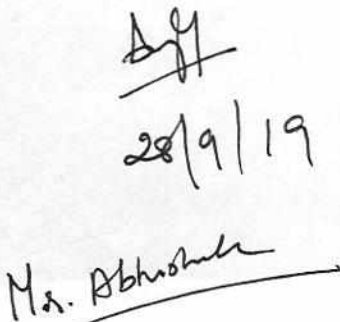 28/9/19
Mr. Abhishek